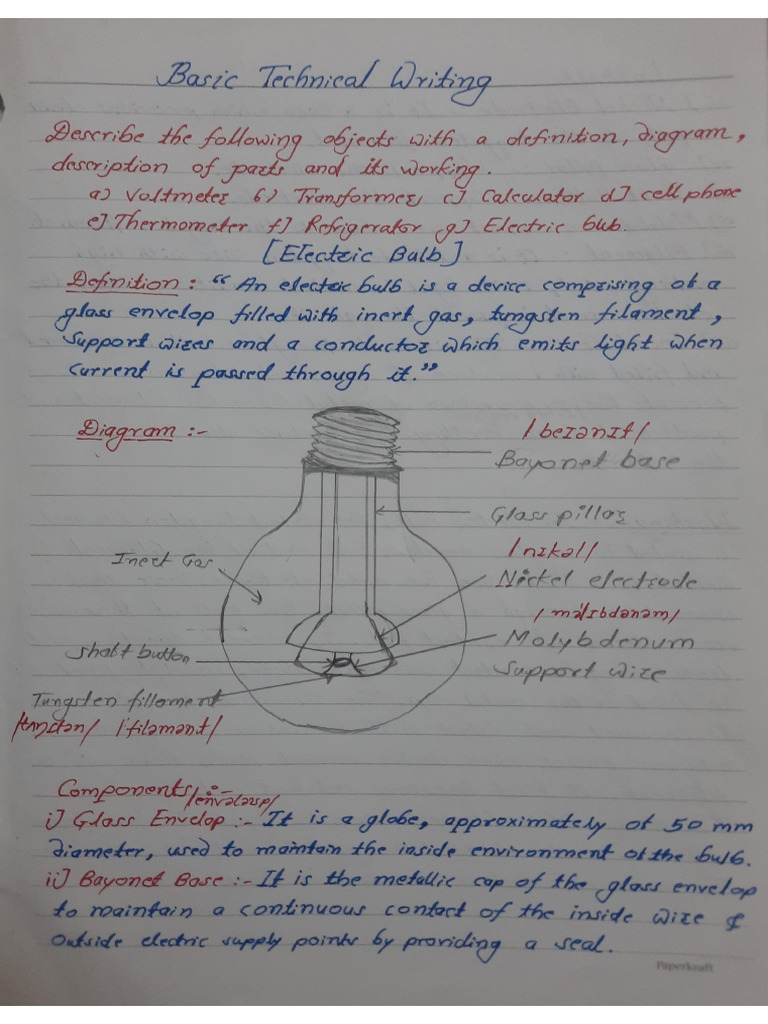 Basic Technical Writing
Describe the following objects with a definition, diagram,
description of parts and its working.
a) Voltmeter b) Transformer, c] Calculator d] cell phone
e] Thermometer f] Refrigerator g] Electric bulb.
[Electric Bulb]
Definition : "An electric bulb is a device comprising of a
glass envelop filled with inert gas, tungsten filament,
support wires and a conductor which emits light when
current is passed through it."
Diagram :-
/beɪənɪt/
Bayonet base
Glass pillar
Inert Gas
/nɪkəl/
Nickel electrode
/məlɪbdənəm/
Molybdenum
support wire
Shaft button
Tungsten fillament
/tʌŋstən/ /filəmənt/
Components :-
/envələʊp/
i) Glass Envelop :- It is a globe, approximately of 50 mm
diameter, used to maintain the inside environment of the bulb.
ii] Bayonet Base :- It is the metallic cap of the glass envelop
to maintain a continuous contact of the inside wire &
outside electric supply points by providing a seal.
Paperkraft